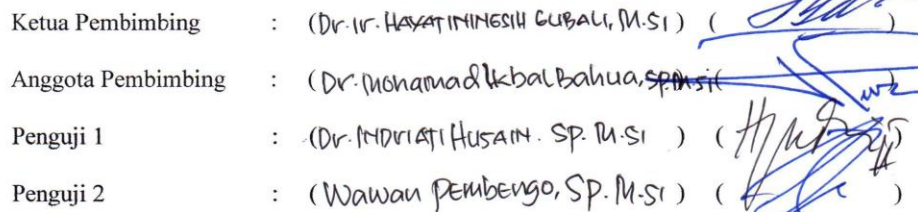 Ketua Pembimbing : (Dr. Ir. HAYATININESIH GUBALI, M.SI) ( )
Anggota Pembimbing : (Dr. Mohamad Ikbal Bahua, SP. M.si( )
Penguji 1 : (Dr. INDRIATI HUSAIN. SP. M.SI ) ( )
Penguji 2 : (Wawan PEMBENGO, SP. M.SI) ( )